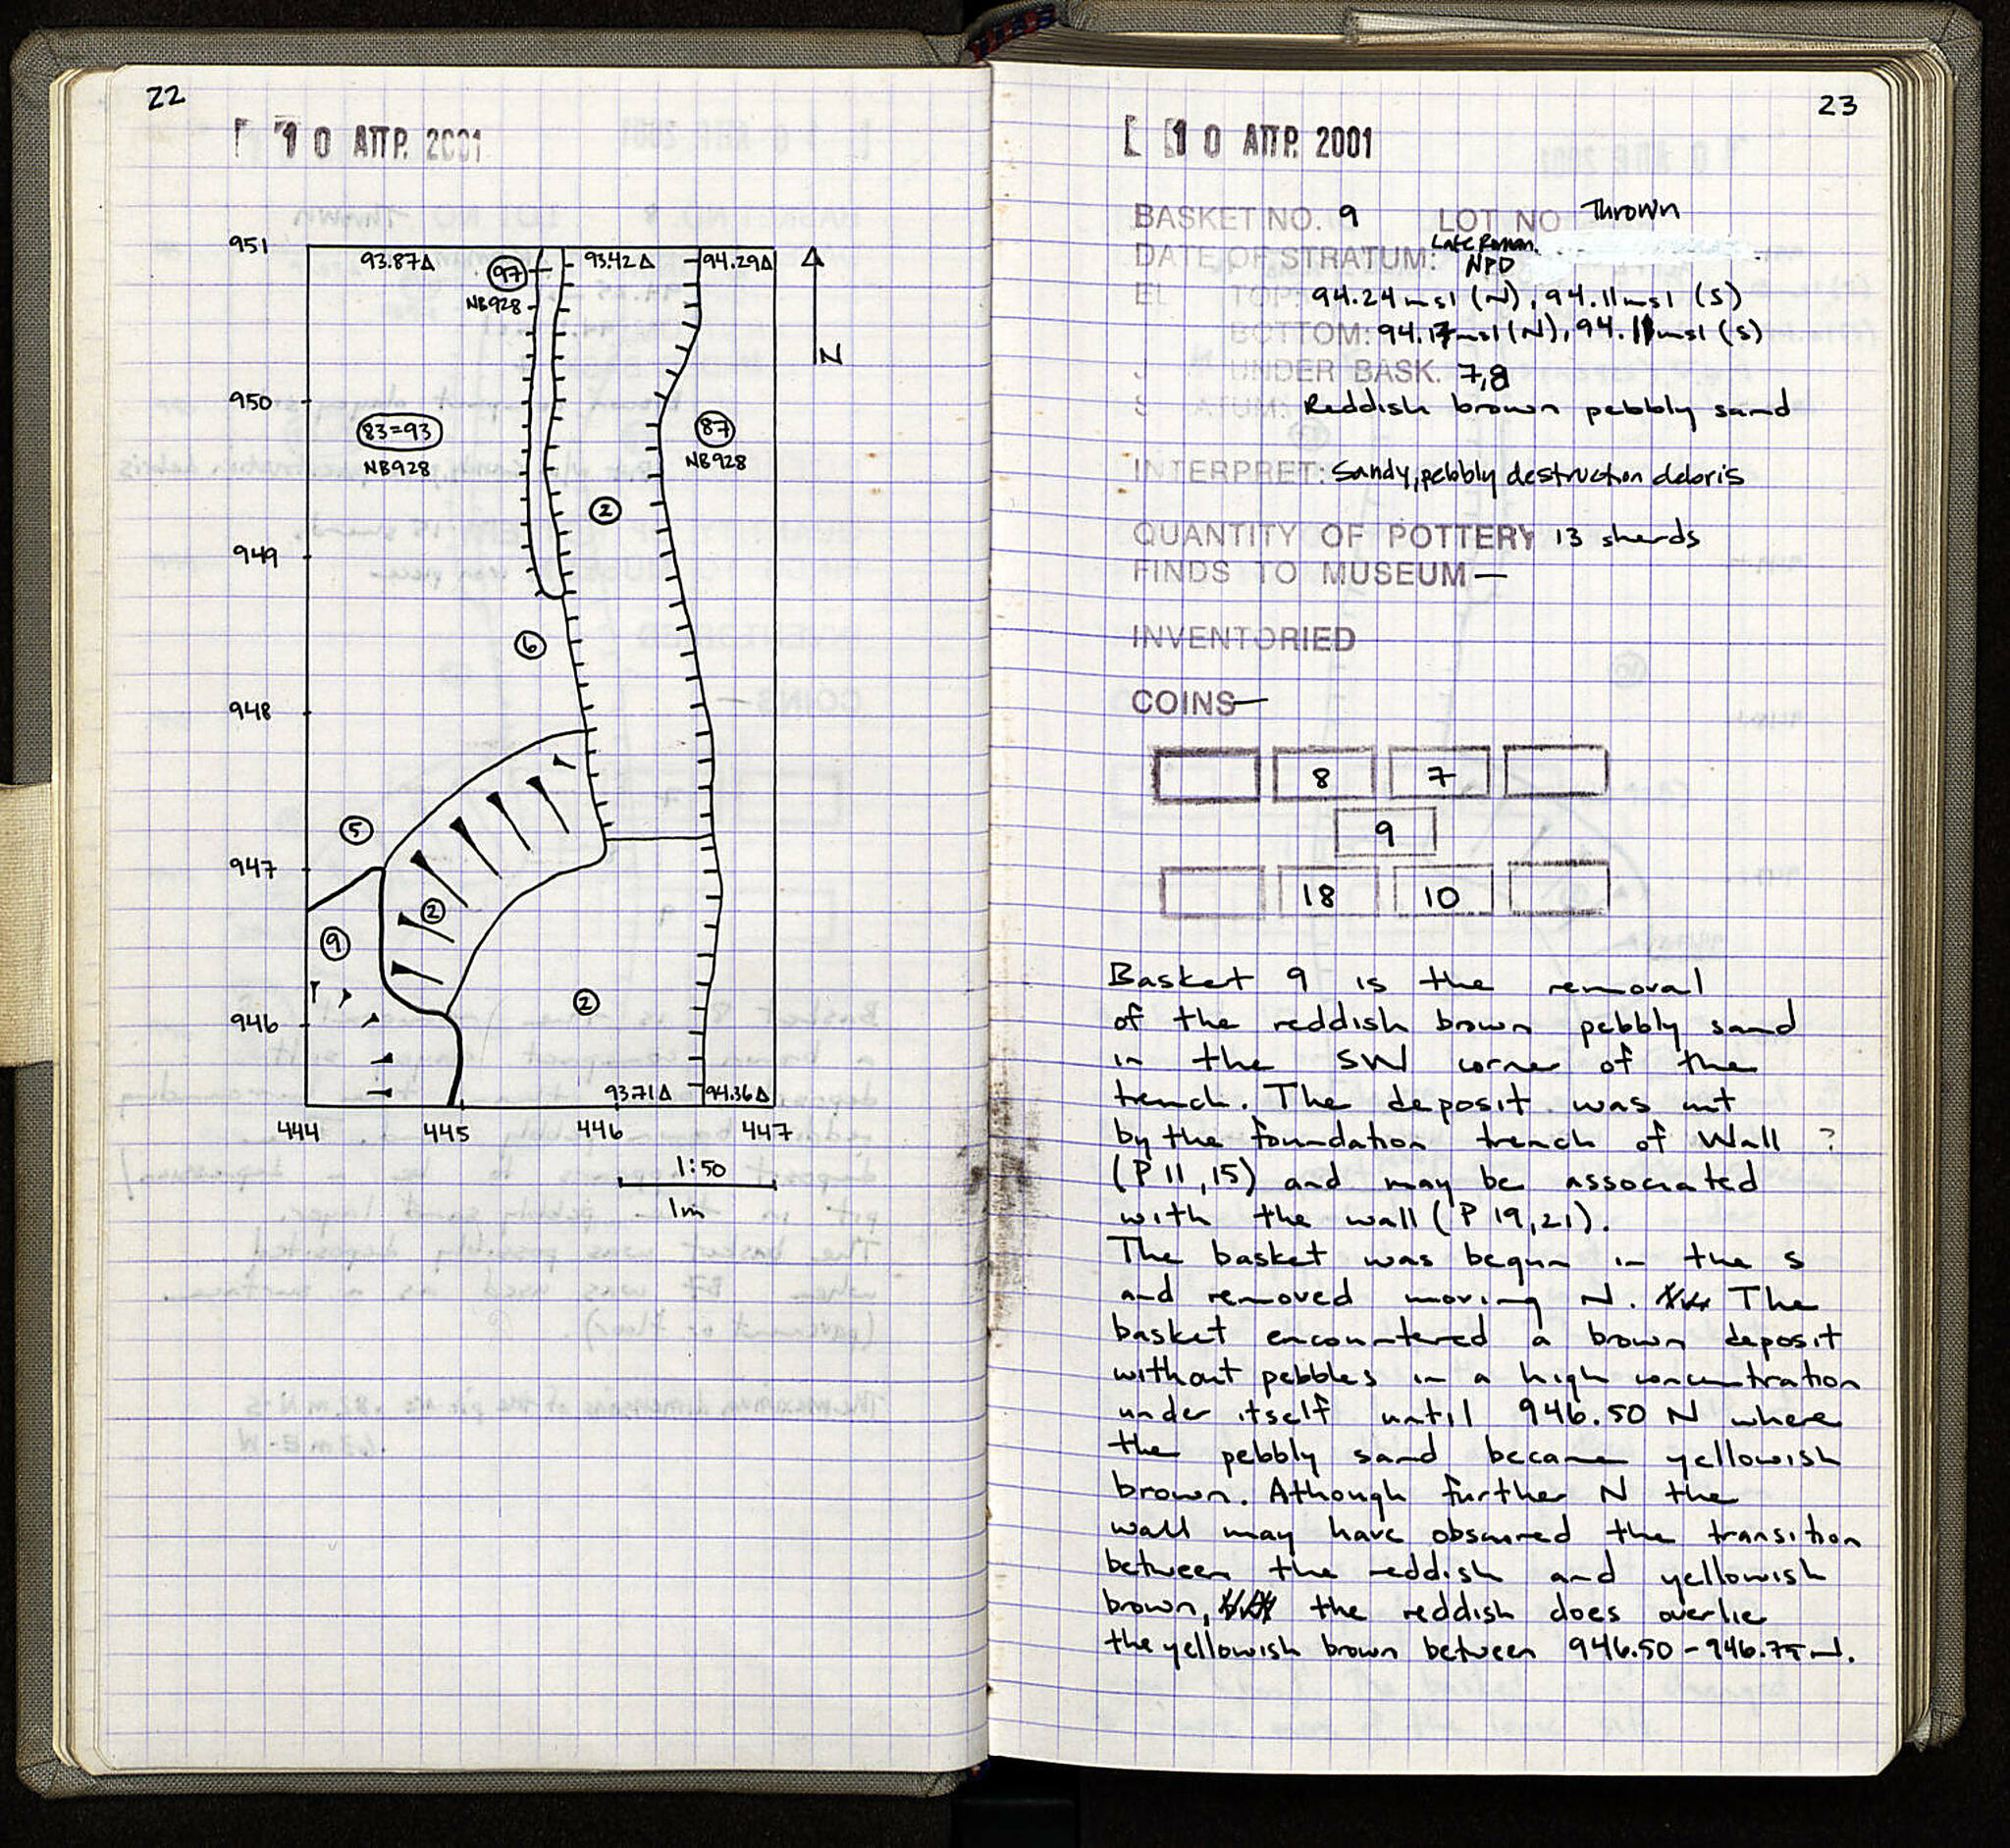 22
10 ΑΠΡ. 2001
951
93.87Δ
97
93.42Δ
94.29Δ
NB928
N
950
83=93
NB928
87
NB928
2
949
6
948
5
947
2
9
2
946
93.71Δ
94.36Δ
444 445 446 447
1:50
1m
23
10 ΑΠΡ. 2001
BASKET NO. 9 LOT NO Thrown
DATE OF STRATUM: Late Roman.
NPD
EL TOP: 94.24msl (N), 94.11msl (S)
BOTTOM: 94.17msl (N), 94.11msl (S)
UNDER BASK. 7,8
ATUM: Reddish brown pebbly sand
INTERPRET: Sandy, pebbly destruction debris
QUANTITY OF POTTERY 13 sherds
FINDS TO MUSEUM —
INVENTORIED
COINS —
8 7
9
18 10
Basket 9 is the removal
of the reddish brown pebbly sand
in the SW corner of the
trench. The deposit was cut
by the foundation trench of Wall ?
(P 11, 15) and may be associated
with the wall (P 19, 21).
The basket was begun in the S
and removed moving N. The
basket encountered a brown deposit
without pebbles in a high concentration
under itself until 946.50 N where
the pebbly sand became yellowish
brown. Athough further N the
wall may have obscured the transition
between the reddish and yellowish
brown, the reddish does overlie
the yellowish brown between 946.50 - 946.75 N.